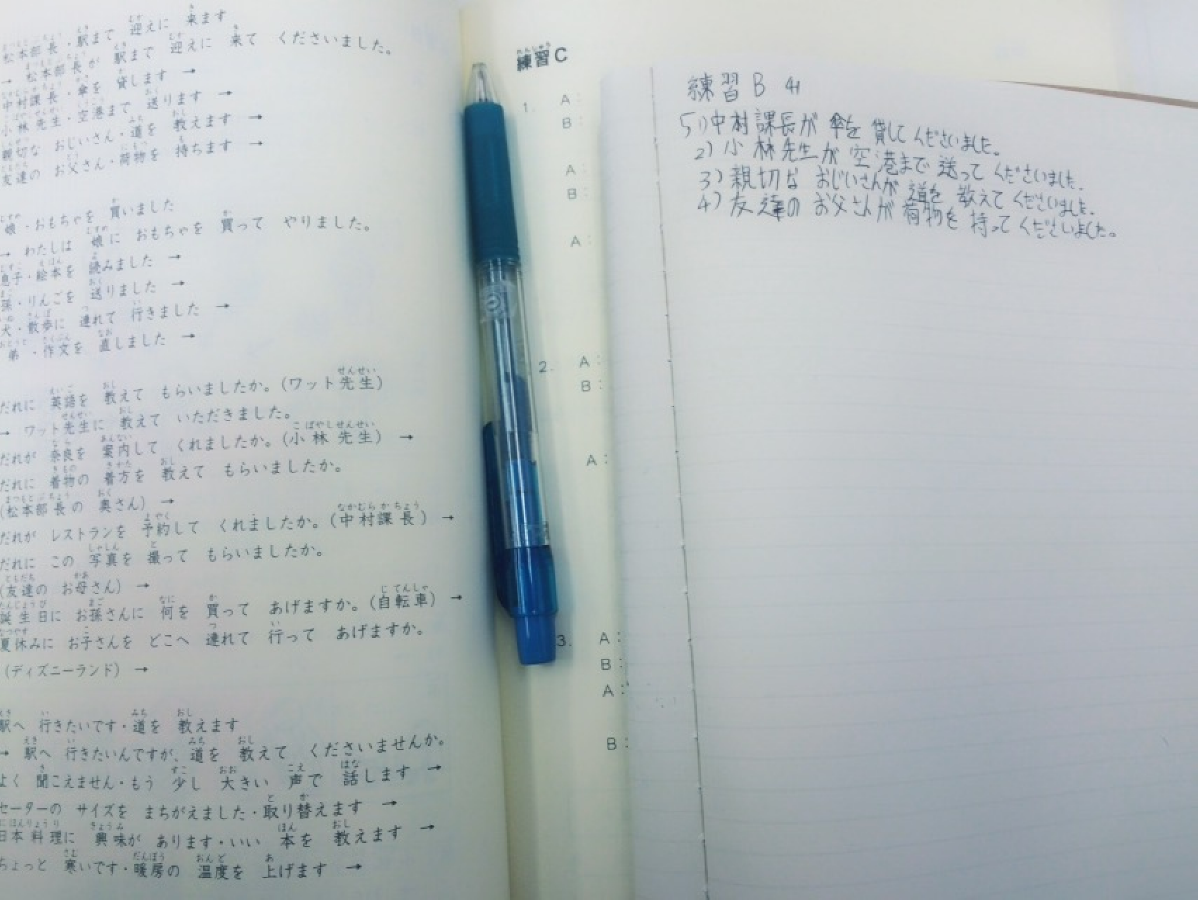 松本部長・駅まで 迎えに 来ます
→ 松本部長が 駅まで 迎えに 来て くださいました。
中村課長・傘を 貸します →
小林先生・空港まで 送ります →
親切な おじいさん・道を 教えます →
友達の お父さん・荷物を 持ちます →
娘・おもちゃを 買いました
→ わたしは 娘に おもちゃを 買って やりました。
息子・絵本を 読みました →
孫・りんごを 送りました →
犬・散歩に 連れて 行きました →
弟・作文を 直しました →
だれに 英語を 教えて もらいましたか。(ワット先生)
→ ワット先生に 教えて いただきました。
だれが 奈良を 案内して くれましたか。(小林先生) →
だれに 着物の 着方を 教えて もらいましたか。
(松本部長の 奥さん) →
だれが レストランを 予約して くれましたか。(中村課長) →
だれに この 写真を 撮って もらいましたか。
(友達の お母さん) →
誕生日に お孫さんに 何を 買って あげますか。(自転車) →
夏休みに お子さんを どこへ 連れて 行って あげますか。
(ディズニーランド) →
駅へ 行きたいです・道を 教えます
→ 駅へ 行きたいんですが、道を 教えて くださいませんか。
よく 聞こえません・もう 少し 大きい 声で 話します →
セーターの サイズを まちがえました・取り替えます →
日本料理に 興味が あります・いい 本を 教えます →
ちょっと 寒いです・暖房の 温度を 上げます →
練習C
1. A:
B:
A:
B:
A:
2. A:
B:
A:
3. A:
B:
A:
B:
練習 B 41
5 1)中村課長が 傘を 貸してくださいました。
2)小林先生が 空港まで 送ってくださいました.
3)親切な おじいさんが 道を 教えてくださいました.
4)友達の お父さんが 荷物を 持ってくださいました。